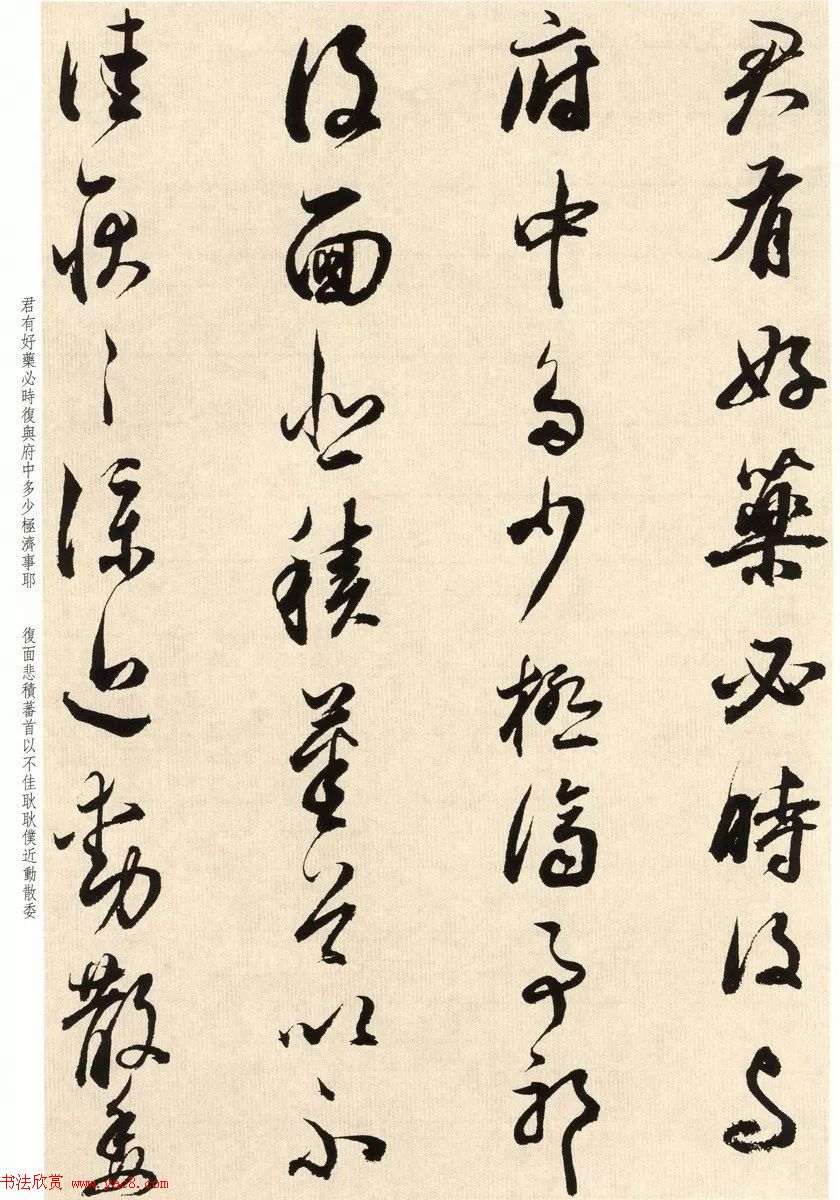 君有好藥必時復與
府中多少極濟事耶
復面悲積蕃首以不
佳耿耿僕近動散委
君有好藥必時復與府中多少極濟事耶 復面悲積蕃首以不佳耿耿僕近動散委
书法欣赏 www.yac8.com